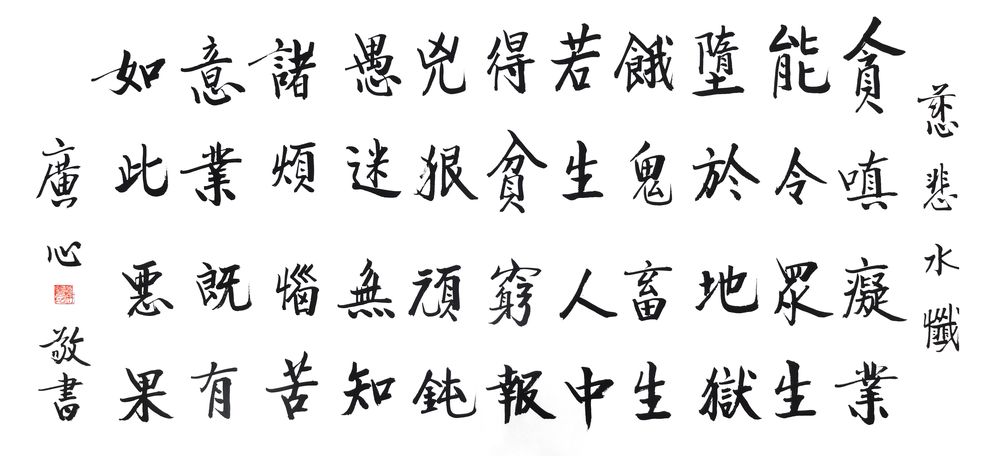 慈悲水懺
貪嗔癡業
能令眾生
墮於地獄
餓鬼畜生
若生人中
得貧窮報
兇狠頑鈍
愚迷無知
諸煩惱苦
意業既有
如此惡果
廣心敬書